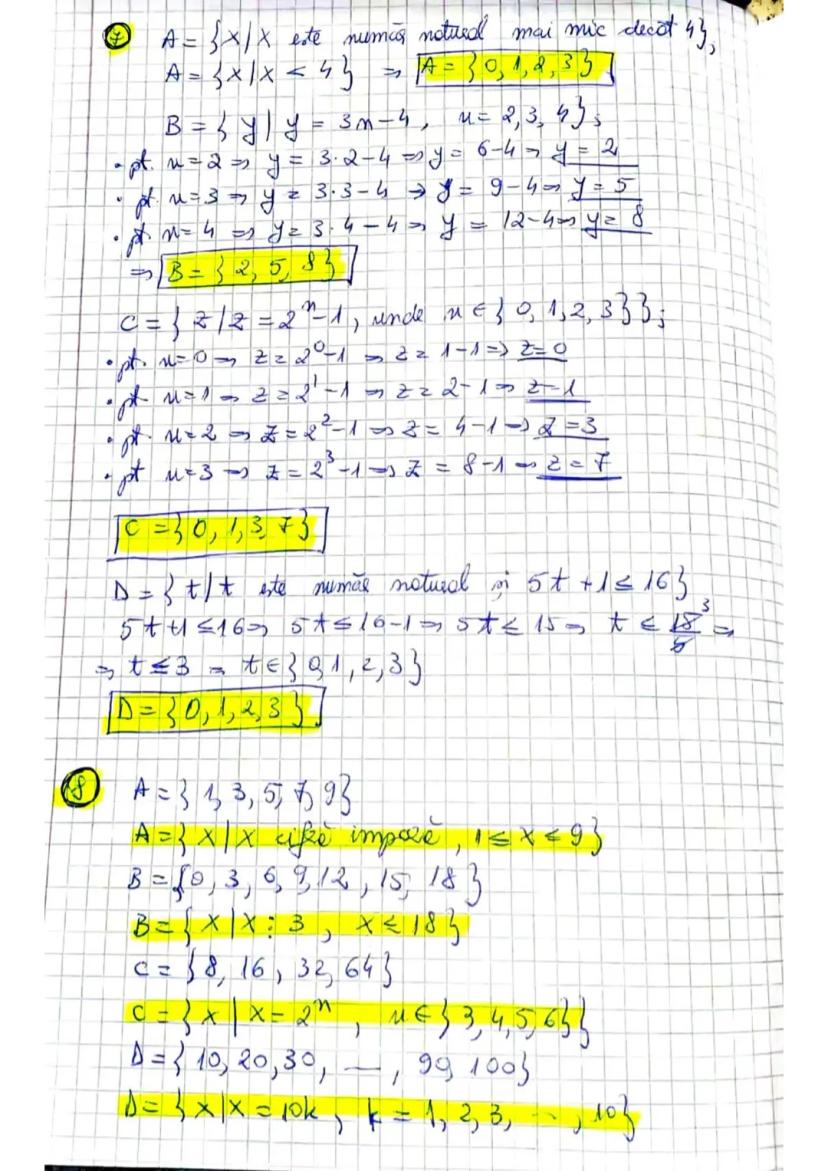 7 A = {x/x este număr natural mai mic decât 4},
A = {x/x < 4} ⇒ A = {0, 1, 2, 3}
B = {y/y = 3n-4, n = 2, 3, 4};
• pt. n=2 ⇒ y = 3·2-4 ⇒ y = 6-4 ⇒ y = 2
• pt. n=3 ⇒ y = 3·3-4 ⇒ y = 9-4 ⇒ y = 5
• pt. n=4 ⇒ y = 3·4-4 ⇒ y = 12-4 ⇒ y = 8
⇒ B = {2, 5, 8}
C = {z/z = 2ⁿ-1, unde n ∈ {0, 1, 2, 3}};
• pt. n=0 ⇒ z = 2⁰-1 ⇒ z = 1-1 ⇒ z=0
• pt. n=1 ⇒ z = 2¹-1 ⇒ z = 2-1 ⇒ z=1
• pt. n=2 ⇒ z = 2²-1 ⇒ z = 4-1 ⇒ z=3
• pt n=3 ⇒ z = 2³-1 ⇒ z = 8-1 ⇒ z = 7
C = {0, 1, 3, 7}
D = {t/t este număr natural și 5t+1 ≤ 16}
5t+1 ≤ 16 ⇒ 5t ≤ 16-1 ⇒ 5t ≤ 15 ⇒ t ≤ 15/5 3 ⇒
⇒ t ≤ 3 ⇒ t ∈ {0, 1, 2, 3}
D = {0, 1, 2, 3}
8 A = {1, 3, 5, 7, 9}
A = {x/x cifră impară, 1 ≤ x ≤ 9}
B = {0, 3, 6, 9, 12, 15, 18}
B = {x/x ⋮ 3, x ≤ 18}
C = {8, 16, 32, 64}
C = {x/x = 2ⁿ, n ∈ {3, 4, 5, 6}}
D = {10, 20, 30, ..., 90, 100}
D = {x/x = 10k, k = 1, 2, 3, ..., 10}